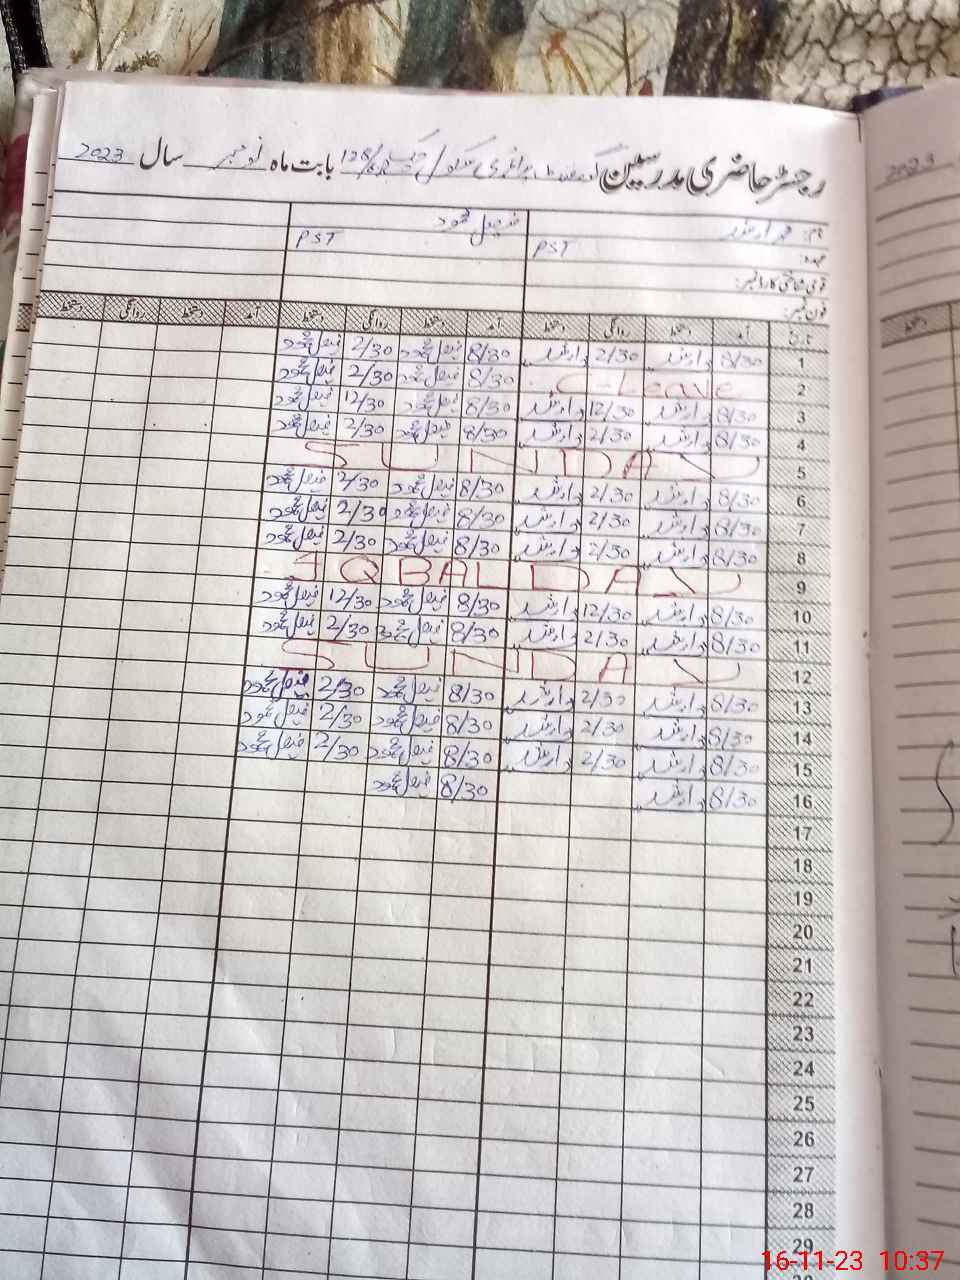 رجسٹر حاضری مدرسین گورنمنٹ پرائمری سکول چک 128/ بابت ماہ نومبر سال 2023
نام: محمد ارشد فیصل محمود
عہدہ: PST PST
قومی شناختی کارڈ نمبر:
فون نمبر:
تاریخ آمد دستخط روانگی دستخط آمد دستخط روانگی دستخط آمد دستخط روانگی دستخط
1 8/30 ارشد 2/30 ارشد 8/30 فیصل محمود 2/30 فیصل محمود
2 C-Leave 8/30 فیصل محمود 2/30 فیصل محمود
3 8/30 ارشد 12/30 ارشد 8/30 فیصل محمود 12/30 فیصل محمود
4 8/30 ارشد 2/30 ارشد 8/30 فیصل محمود 2/30 فیصل محمود
5 SUNDAY
6 8/30 ارشد 2/30 ارشد 8/30 فیصل محمود 2/30 فیصل محمود
7 8/30 ارشد 2/30 ارشد 8/30 فیصل محمود 2/30 فیصل محمود
8 8/30 ارشد 2/30 ارشد 8/30 فیصل محمود 2/30 فیصل محمود
9 IQBAL DAY
10 8/30 ارشد 12/30 ارشد 8/30 فیصل محمود 12/30 فیصل محمود
11 8/30 ارشد 2/30 ارشد 8/30 فیصل محمود 2/30 فیصل محمود
12 SUNDAY
13 8/30 ارشد 2/30 ارشد 8/30 فیصل محمود 2/30 فیصل محمود
14 8/30 ارشد 2/30 ارشد 8/30 فیصل محمود 2/30 فیصل محمود
15 8/30 ارشد 2/30 ارشد 8/30 فیصل محمود 2/30 فیصل محمود
16 8/30 ارشد 8/30 فیصل محمود
17
18
19
20
21
22
23
24
25
26
27
28
29
2023
دستخط
16-11-23 10:37